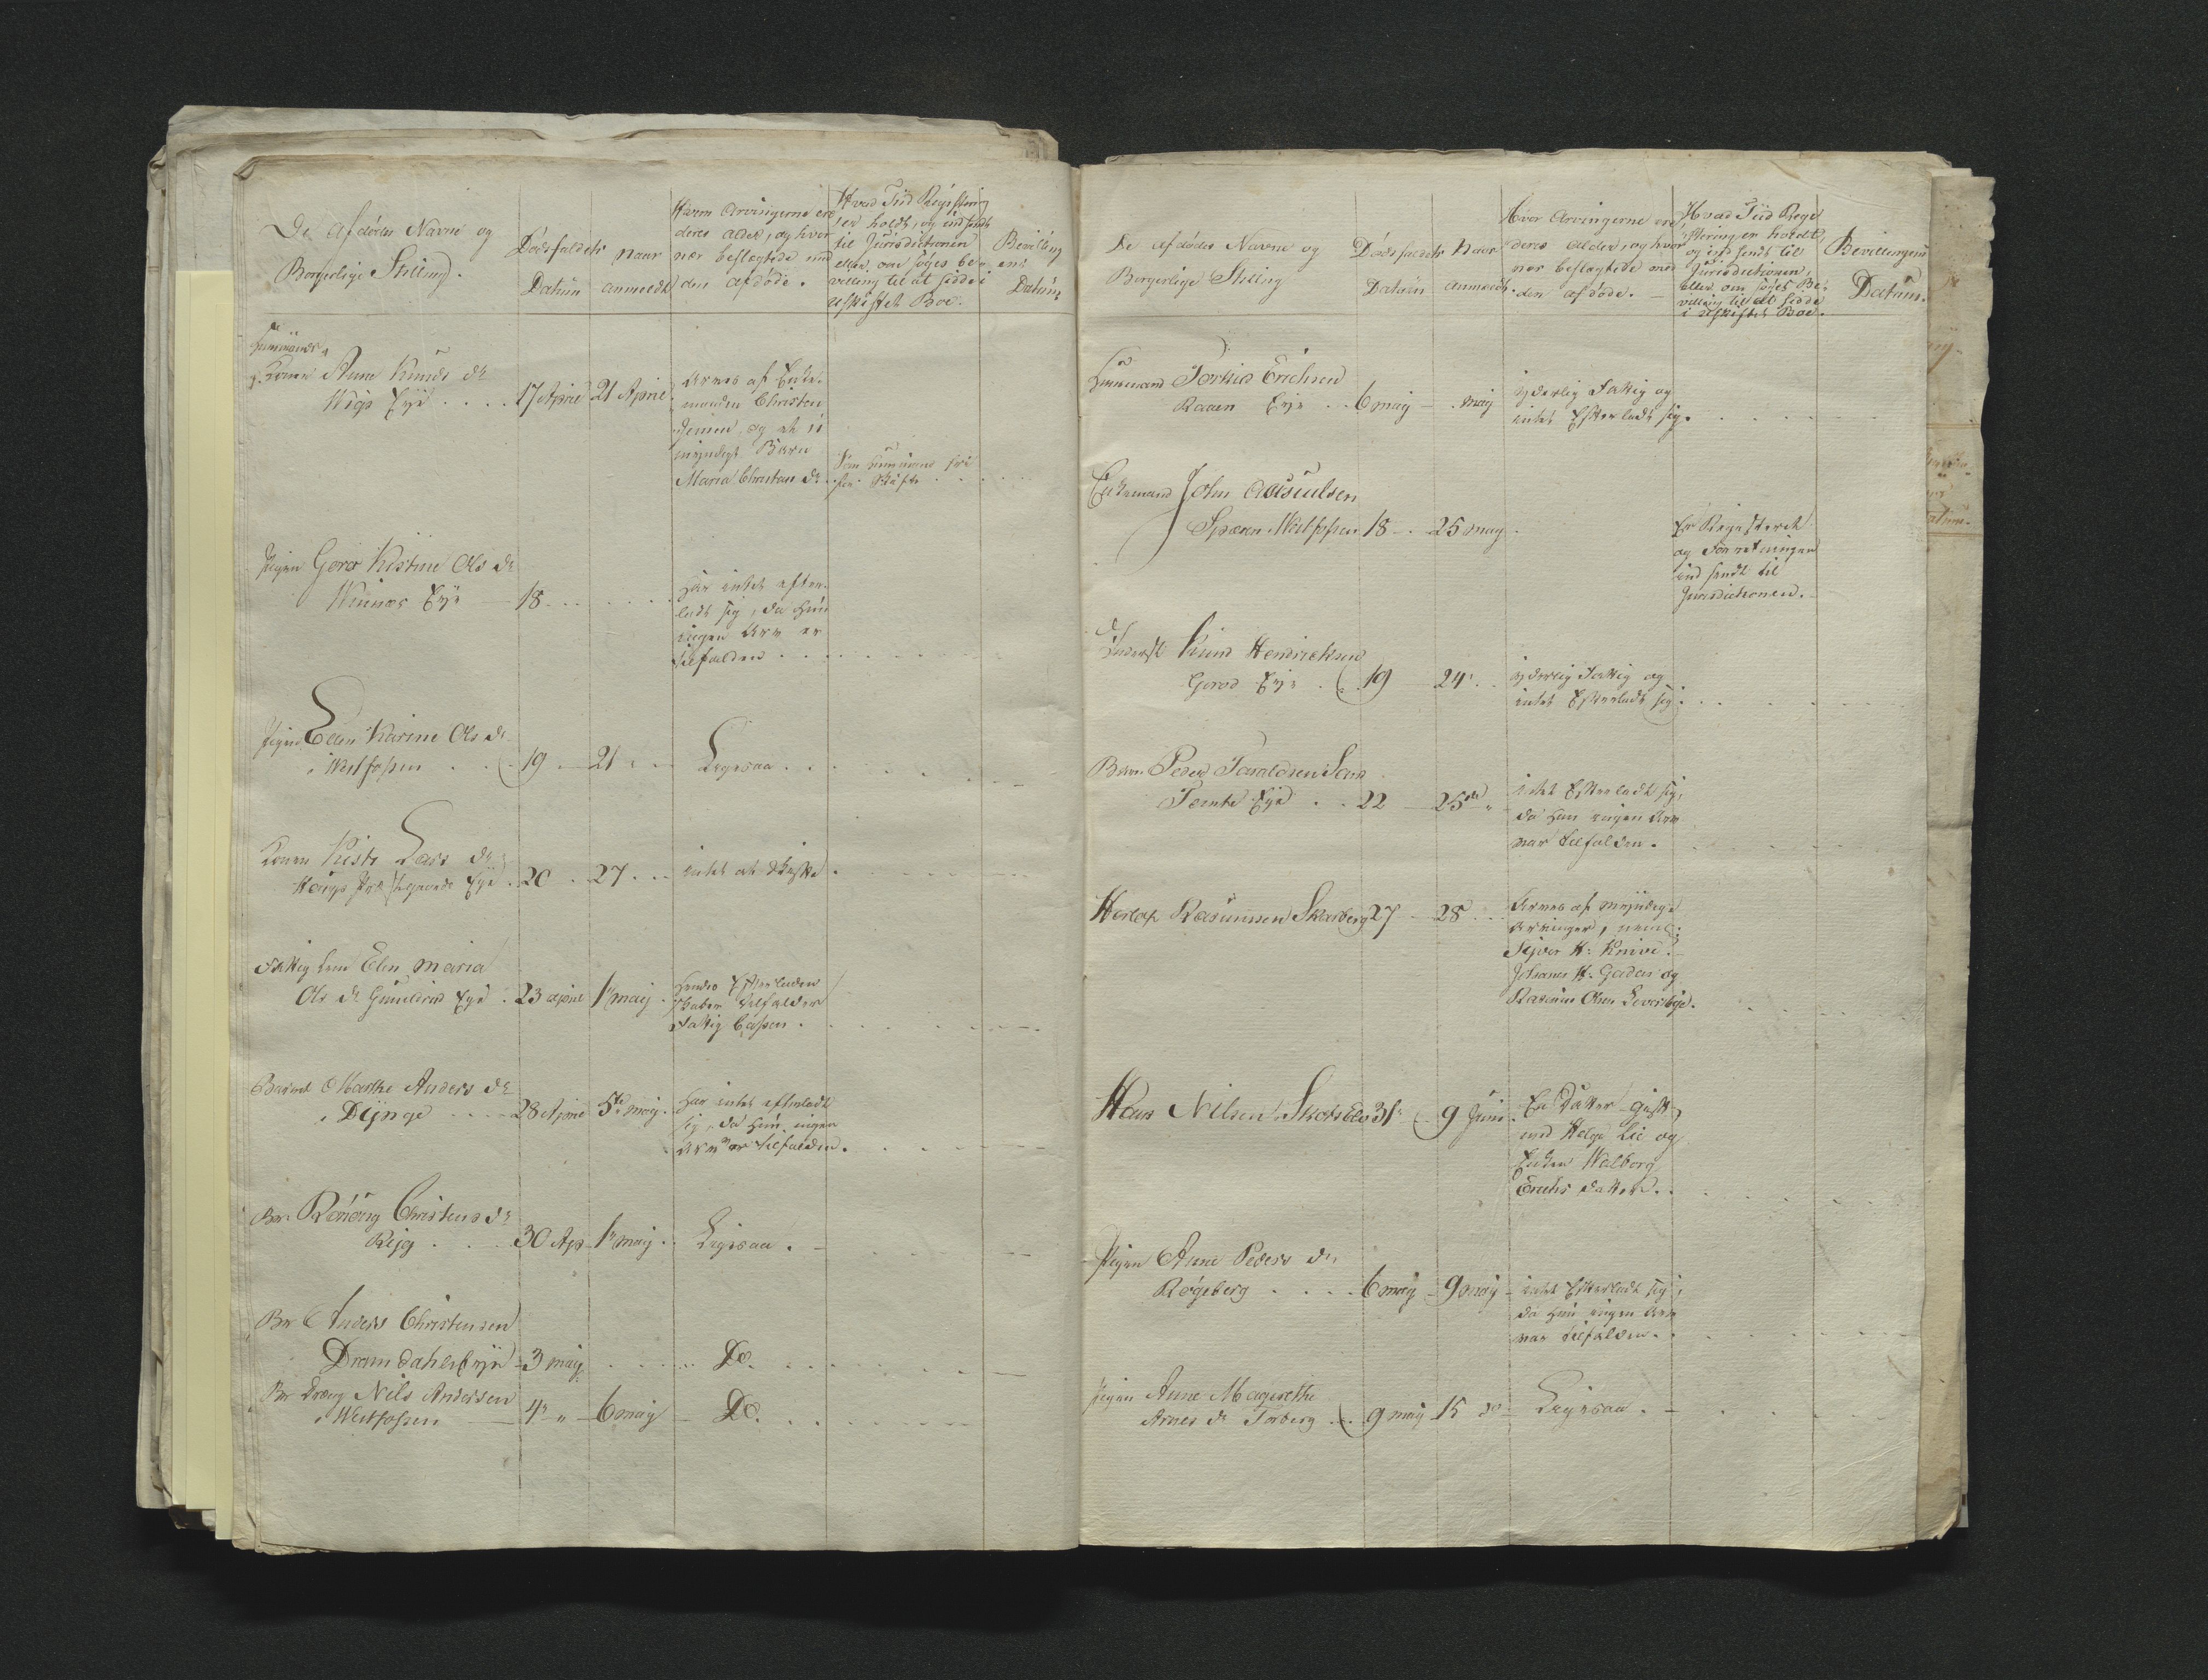 De afdødes Navne og
Borgerlige Stilling.
Dødsfaldets
Datum
naar
anmeldt
Hvem Arvingerne ere
deres Alder, og hvor
nær beslægtede med
den afdøde.
Hvad Tiid Registering
er holdt, og indsendt
til Jurisdictionen
eller om søges be-
villing til at sidde i
uskiftet Boe.
Bevilling
ens
Datum
Huusmands
Konen Anne Knuds dr
Eye 17 Aprie 21 Aprie
Arves af Enke-
manden Christen
Jensen og et u
myndigt Barn
Maria Christens dr.
Som Huusmand fri
for Skifte
Pigen Goro Kistine Ols dr
Eye 18
Har intet efter-
ladt sig, da Hun
ingen Arv er
tilfalden
Pigen Elen Karine Ols dr
i Westfossen 19 21 Ligesaa
Konen Kisti Lars dr
Eye 20 27 intet at skifte
Fattig Lem Elen Maria
Ols dr Eye 23 aprie 1 maij
Hendes Efterladen
skaber tilfalder
Fattig Cassen.
Barnet Marthe Anders dr
Dÿnge 28 Aprie 5te maij
Har intet efterladt
sig, da Hun ingen
Arv er tilfalden.
Bn. Rønnaug Christens dr
Rijg 30 Apr 1 maij Ligesaa.
Bn Anders Christensen
Dramdahls Eye 3 maij Do.
Bn Dreng Nils Andersen
i Westfossen 4 6 maij Do.
De afdødes Navne og
Borgerlige Stilling
Dødsfaldets
Datum
Naar
anmeldt
Hvor Arvingerne ere
deres Alder, og hvor
nær beslægtede med
den afdøde.
Hvad Tiid Regi
stering er holdt
og indsendt til
Jurisdictionen,
eller om søges Be-
villing til at sidde
i uskiftet Boe.
Bevillingens
Datum.
Huusmand Torkild Erichsen
Raaen Eye 6 maij maij
Yderlig Fattig og
intet Efterladt sig.
Enkemand John
Westfossen 18 25 maij
Er Registeret
og Forretningen
ind sendt til
Jurisdictionen.
Inderst Knud Hendrichsen
Eye 19 24
Yderlig Fattig og
intet Efterladt sig
Barn Peder Taraldsen
Temte Eye 22 25de
intet Efterladt sig,
da Han ingen Arv
var tilfalden.
Herlof Rasmussen Skarberg 27 28
Arves af myndige
Arvinger, neml:
Sijver H: Knive.
Johanes H: og
Rasmus Olsen
Hans Nilsen 31 9 Juni
En Datter gift
med Helge Lie og
Enken Walborg
Erichs datter.
Pigen Anne Peders dr
Røgeberg 6 maij 9 maij
intet Efterladt sig,
da Hun ingen Arv
var tilfalden.
Pigen Anne Magrethe
Arnes dr Torberg 9 maij 15 do Ligesaa.